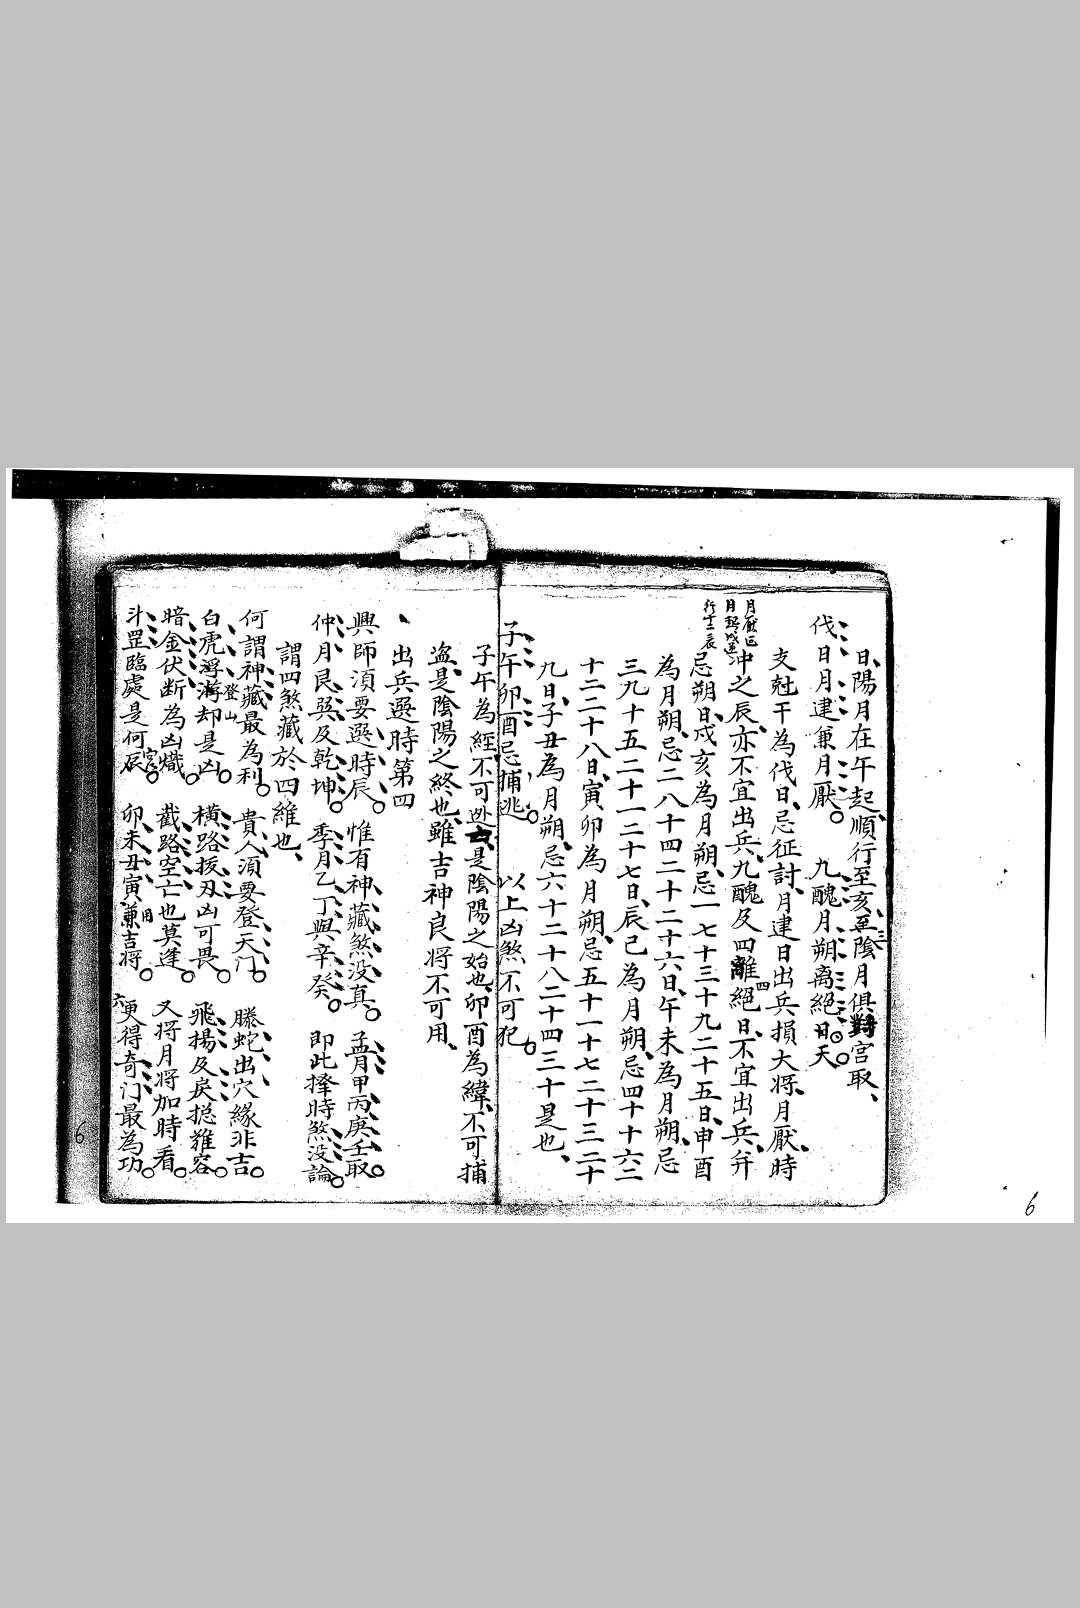 日陽月在午起順行至亥至陰月俱對宮取
伐日月建兼月厭 九醜月朔离絕日天
支尅干為伐日忌征討月建日出兵損大將月厭時
月厭正月起戌逆行十二辰
沖之辰亦不宜出兵九醜及四離四絕日不宜出兵并
忌朔日戌亥為月朔忌一七十三十九二十五日申酉
為月朔忌二八十四二十二十六日午未為月朔忌
三九十五二十一二十七日辰巳為月朔忌四十十六二
十二二十八日寅卯為月朔忌五十一十七二十三二十
九日子丑為月朔忌六十二十八二十四三十是也
子午卯酉忌捕逃 以上凶煞不可犯
子午為經不可逃去是陰陽之始也卯酉為緯不可捕
盜是陰陽之終也雖吉神良將不可用
出兵選時第四
興師須要選時辰 惟有神藏煞没真 孟月甲丙庚壬取
仲月艮巽及乾坤 季月乙丁與辛癸 即此擇時煞没論
謂四煞藏於四維也
何謂神藏最為利 貴人須要登天门 螣蛇出穴緣非吉
白虎浮游却是凶 登山 橫路拔刃凶可畏 飛揚及戾摠難容
暗金伏断為凶熾 截路空亡也莫逢 又將月將加時看
斗罡臨處是何辰 宮 卯未丑寅兼吉將 用 更得奇门最為功
六
6
6